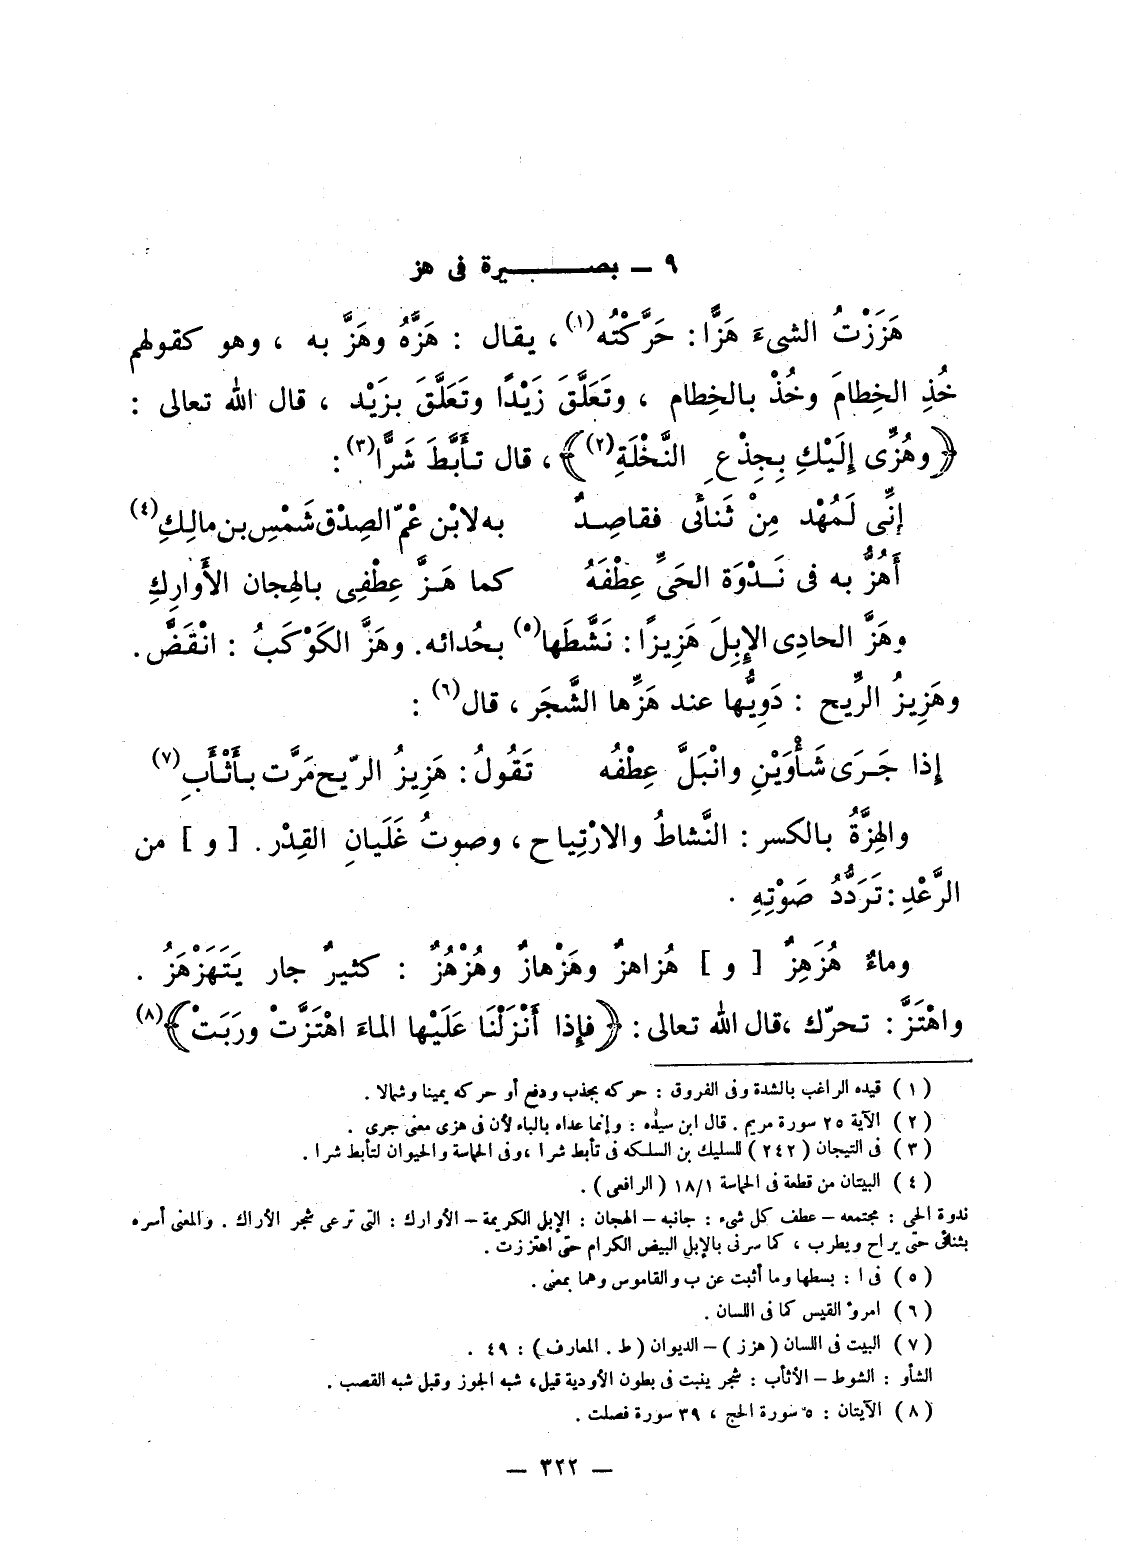 ٩ ــ بصـــــــيرة فى هز
هَزَزْتُ الشىءَ هَزًّا : حَرَّكْتُه(١) ، يقال : هَزَّهُ وهَزَّ به ، وهو كقولهم
خُذِ الخِطامَ وخُذْ بالخِطام ، وتَعَلَّقَ زَيْدًا وتَعَلَّقَ بزَيْد ، قال الله تعالى :
﴿ وهُزِّى إِلَيْكِ بِجِذْعِ النَّخْلَةِ(٢) ﴾ ، قال تأَبَّطَ شَرًّا(٣) :
إِنِّى لَمُهْد مِنْ ثَنائى فقاصِدٌ به لابْن عْمّ الصِدْق شَمْسِ بن مالِكِ(٤)
أَهُزُّ به فى نَــدْوَة الحَىِّ عِطْفَهُ كما هَـزَّ عِطْفِى بالهِجان الأَوارِكِ
وهَزَّ الحادِى الإِبِلَ هَزِيزًا : نَشَّطَها(٥) بحُدائه. وهَزَّ الكَوْكَبُ : انْقَضَّ .
وهَزِيزُ الرِّيح : دَوِيُّها عند هَزِّها الشَّجَر ، قال(٦) :
إِذا جَـرَى شَأْوَيْنِ وانْبَلَّ عِطْفُه تَقُولُ : هَزِيزُ الرّيح مَرَّت بأَثْأَبِ(٧)
والهِزَّةُ بالكسر : النَّشاطُ والارْتِياح ، وصوتُ غَلَيانِ القِدْر . [ و ] من
الرَّعْدِ : تَرَدُّدُ صَوْتِهِ .
وماءٌ هُزَهِزٌ [ و ] هُزاهزٌ وهَزْهازٌ وهُزْهُزٌ : كثيرٌ جار يَتَهَزْهَزُ .
واهْتَزَّ : تحرّك ، قال الله تعالى : ﴿ فإِذا أَنْزَلْنَا عَلَيْها الماءَ اهْتَزَّتْ ورَبَتْ ﴾(٨)
( ١ ) قيده الراغب بالشدة وفى الفروق : حركه بجذب ودفع أو حركه يمينا وشمالا .
( ٢ ) الآية ٢٥ سورة مريم . قال ابن سيده : وإنما عداه بالباء لأن فى هزى معنى جرى .
( ٣ ) فى التيجان ( ٢٤٢ ) للسليك بن السلكه فى تأبط شرا ، وفى الحماسة والحيوان لتأبط شرا .
( ٤ ) البيتان من قطعة فى الحماسة ١٨/١ ( الرافعى ) .
ندوة الحى : مجتمعه – عطف كل شىء : جانبه – الهجان : الإبل الكريمة – الأوارك : التى ترعى شجر الأراك . والمعنى أسره
بثنائى حتى يراح ويطرب ، كما سرنى بالإبل البيض الكرام حتى اهتززت .
( ٥ ) فى ا : بسطها وما أثبت عن ب والقاموس وهما بمعنى .
( ٦ ) امرؤ القيس كما فى اللسان .
( ٧ ) البيت فى اللسان ( هزز ) – الديوان ( ط . المعارف ) : ٤٩ .
الشأو : الشوط – الأثأب : شجر ينبت فى بطون الأودية قيل ، شبه الجوز وقيل شبه القصب .
( ٨ ) الآيتان : ٥ سورة الحج ، ٣٩ سورة فصلت .
— ٣٢٢ —